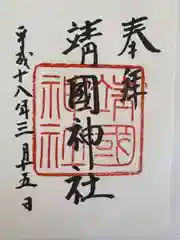 奉拝
靖國神社
平成十八年三月十五日
靖國神社